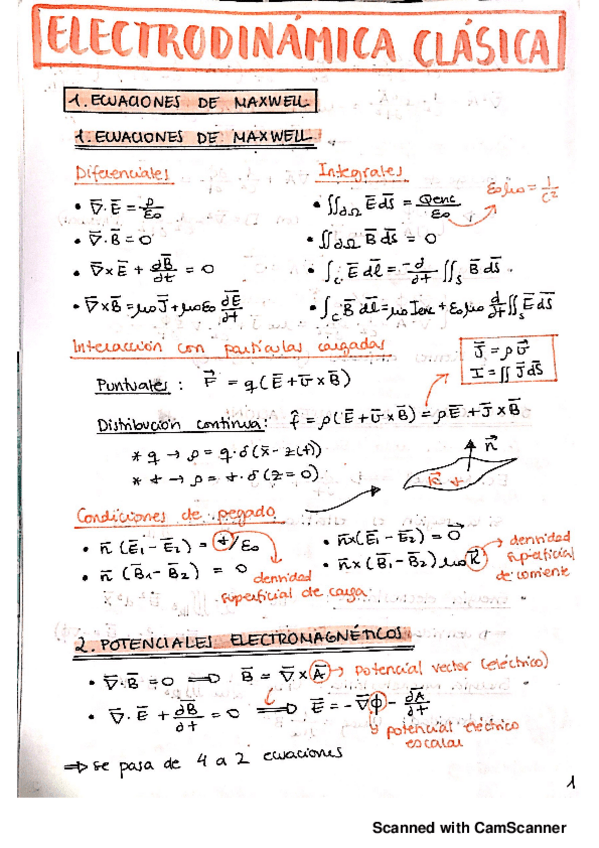 ELECTRODINÁMICA CLÁSICA
1. ECUACIONES DE MAXWELL
1. ECUACIONES DE MAXWELL
Diferenciales
• ∇·E̅ = ρ/ε₀
• ∇·B̅ = 0
• ∇×E̅ + ∂B̅/∂t = 0
• ∇×B̅ = μ₀J̅ + μ₀ε₀ ∂E̅/∂t
Integrales
ε₀μ₀ = 1/c²
• ∬∂Ω E̅ dS̅ = Qenc/ε₀
• ∬∂Ω B̅ dS̅ = 0
• ∫c E̅ dl̅ = -d/dt ∬s B̅ dS̅.
• ∫c B̅ dl̅ = μ₀ Ienc + ε₀μ₀ d/dt ∬s E̅ dS̅
Interacción con partículas cargadas
J̅ = ρv̅
I = ∬ J̅ dS̅
Puntuales: F⃗ = q(E̅ + v̅ × B̅)
Distribución continua: f̂ = ρ(E̅ + v̅ × B̅) = ρE̅ + J̅ × B̅
* q → ρ = q·δ(x̅ - z(t))
* σ → ρ = σ·δ(z = 0)
n⃗
K̅ σ
Condiciones de pegado
• n̅ (E̅₁ - E̅₂) = σ/ε₀
• n̅ (B̅₁ - B̅₂) = 0
densidad
superficial de carga
• n̅×(E̅₁ - E̅₂) = 0⃗
• n̅×(B̅₁ - B̅₂) μ₀ K̅
→ densidad
superficial
de corriente
2. POTENCIALES ELECTROMAGNÉTICOS
• ∇·B̅ = 0 ⟹ B̅ = ∇×A̅ → potencial vector (eléctrico)
• ∇·E̅ + ∂B̅/∂t = 0 ⟹ E̅ = -∇ϕ - ∂A̅/∂t
potencial eléctrico
escalar
⇒ se pasa de 4 a 2 ecuaciones
1
Scanned with CamScanner